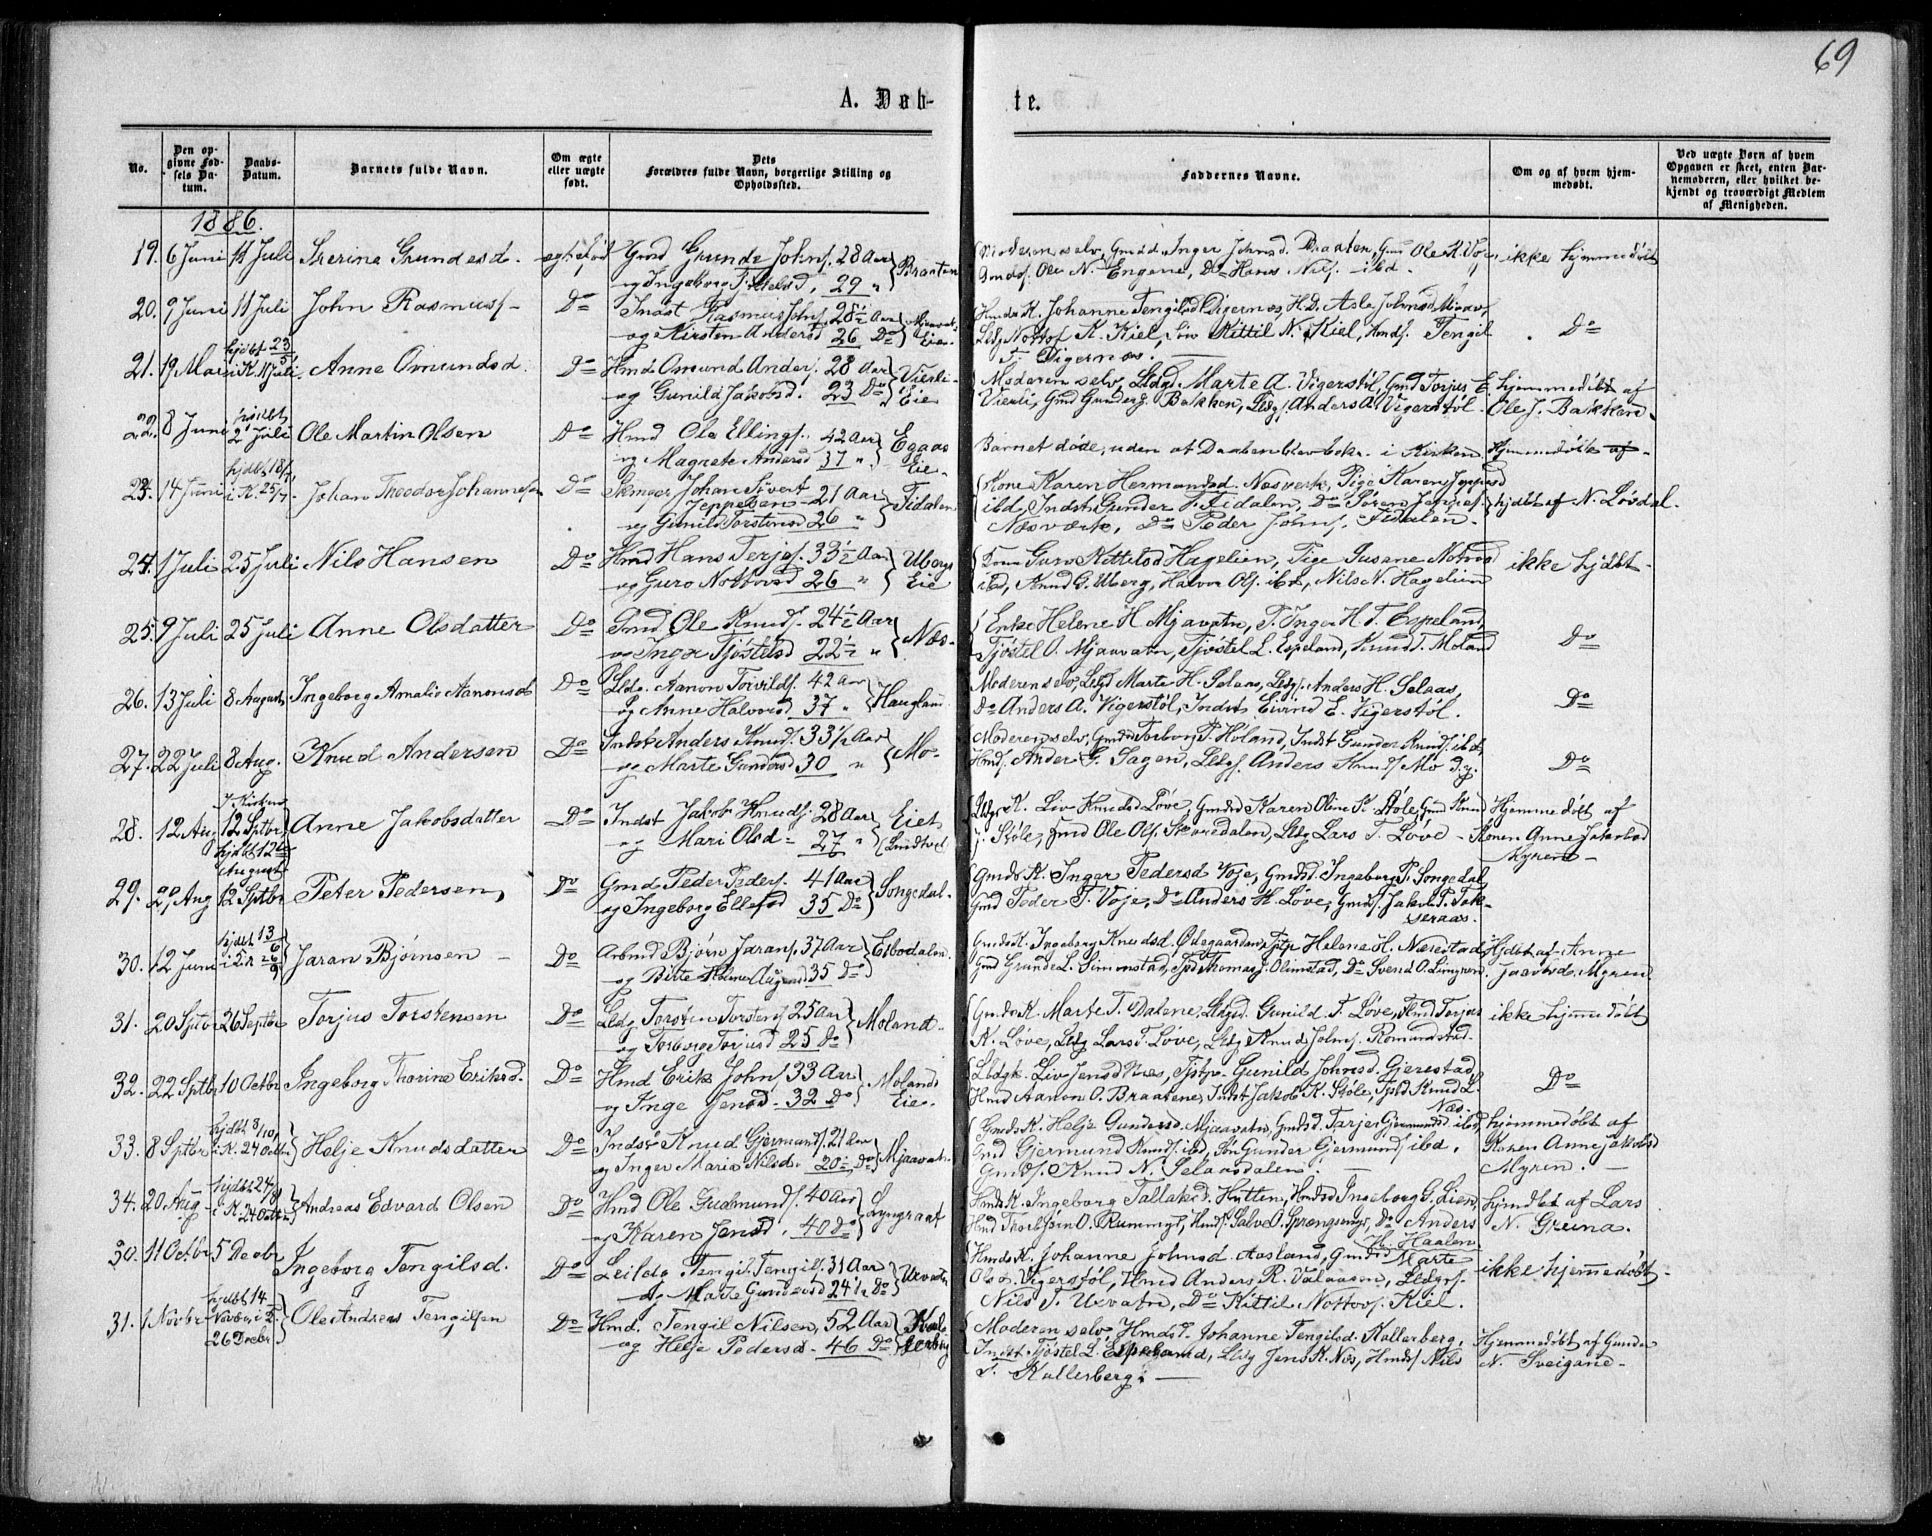 69
A. Døb-
te.
No.
Den op-
givne Fød-
sels Da-
tum.
Daabs-
Datum.
Barnets fulde Navn.
Om ægte
eller uægte
født.
Dets
Forældres fulde Navn, borgerlige Stilling og
Opholdssted.
Faddernes Navne.
Om og af hvem hjem-
medøbt.
Ved uægte Børn af hvem
Opgaven er skeet, enten Bar-
nemoderen, eller hvilket be-
kjendt og troværdigt Medlem
af Menigheden.
1886.
19. 6 Juni 11 Juli Grundesd. ægtefød Gmd Grunde Johns. 28 Aar
og Ingeborg 29 " Braaten
Moderen selv, Gmdd. Inger Johnsd. Braaten, Gmd Ole K. Voje,
Gmds. Ole N. Engene, Do Hans Nils. ibd.
ikke hjemmedøbt
20. 9 Juni 11 Juli John Rasmuss- Do Indst Rasmus Johns. 28½ Aar
og Kirsten Andersd 26 Do Eie
Hmds K. Johanne Tengilsd Digernes, H.D. Asle Johnsd. Mjaav,
Ldg Nottof K. Kiel, Søn Kittil N. Kiel, Hmds. Tengil
T. Digernes.
Do
21. 19 Mai hjdbt 23/5 i K. 11 Juli Anne Osmundsd. Do Hmd Osmund Anders. 28 Aar
og Gunild Jakobsd. 23 Do Vierli Eie
Moderen selv, Ldgd. Marte A. Vigerstøl, Gmd Torjus E.
Vierli, Gmd Gunder J. Bakken, Ldgs. Anders A. Vigerstøl.
hjemmedøbt af
Ole J. Bakken
22. 8 Juni hjdbt 2 Juli Ole Martin Olsen Do Hmd Ole Ellings. 42 Aar
og Magnete Andersd 37 " Egaas Eie
Barnet døde, uden at Daaben blev bekr. i Kirken.
Hjemmedøbt af
23. 14 Juni hjdbt 18/7 i K. 25/7 Johan Theodor Johannesen Do Johan Sivert
Jeppesen 21 Aar
og Gunild Torstensd 26 " Fidalen
Kone Karen Hermansd. Nesverk, Pige Karen Jeppesd
ibd, Indst. Gunder F. Fidalen, Do Søren Jeppes.
Næsværk, Do Peder Johns. Fidalen.
hjdbt af N. Løvdal.
24. 1 Juli 25 Juli Nils Hansen Do Hmd Hans Terjes. 33½ Aar
og Guro Nottovsd 26 " Ubergs Eie
Kone Guro Kittelsd Hagelien, Pige Susane Notovsd
ibd, Knud G. Uberg, Halvor Ols. ibd, Nils N. Hagelien
ikke hjdbt
25. 9 Juli 25 Juli Anne Olsdatter Do Gmd. Ole Knuds. 24½ Aar
og Inger Tjøstelsd 22½ " Næs
Enke Helene H. Mjavatn, P. Inger H. T. Espeland,
Tjøstel O. Mjaavatn, Tjøstel L. Espeland, Knud T. Moland
Do
26. 13 Juli 8 August Ingeborg Amalie Aanonsd Do Ldg. Aanon Torvilds. 42 Aar
og Anne Halvorsd 37 " Haugland
Moderen selv, Ldgd Marte H. Selaas, Ldgs. Anders H. Selaas,
Do Anders A. Vigerstøl, Indst Eivind E. Vigerstøl.
Do
27. 22 Juli 8 Aug. Knud Andersen Do Indst Anders Knuds. 33½ Aar
og Marte Gundersd 30 " Mo
Moderen selv, Gmdsd Torborg P. Høland, Indst Gunder Knuds. ibd,
Hmds. Ander G. Sagen, Ldgs. Anders Knuds Mo d.y.
Do
28. 12 Aug I Kirken 12 Sptbr hjdbt 12te August Anne Jakobsdatter Do Indst Jakob Knuds. 28 Aar
og Mari Olsd 27 " Eiet
Ldgs K. Liv Knudsd Løve, Gmdsd Karen Oline K. Støle, Gmd Knud
J. Støle, Gmd Ole Ols. Skoredalen, Ldg Lars T. Løve
Hjemmedøbt af
Konen Anne Jakobsd
Myren
29. 29 Aug 12 Sptbr Peter Pedersen, Do Gmd Peder Peders. 41 Aar
og Ingeborg Ellefsd 35 Do Songedal
Gmds K. Inger Pedersd Voje, Gmdsd. Ingeborg P. Songedal,
Gmd Peder P. Voje, Do Anders H. Løve, Gmds. Jakob P. Tak-
seraas.
30. 12 Juni hjdbt 13/6 i K. 26/9 Jaran Bjørnsen Do Arbmd Bjørn Jarans. 37 Aar
og Birte Augensd 35 Do Esbodalen
Gmds K. Ingeborg Knudsd. Ødegaarden, Tjp Helene H. Nærestad,
Gmd Grunde L. Simonstad, Tjd Thomas J. Olimstad, Do Svend O. Limyren
Hjdbt af Anne
Jacobsd. Myren.
31. 20 Sptbr 26 Septbr Torjus Torstensen Do Ldg Torsten Torstens. 25 Aar
og Torborg Torjusd 25 Do Moland
Gmds K. Marte T. Dalene, Ldgd. Gunild T. Løve, Hmd Torjus
K. Løve, Ldg Lars T. Løve, Ldg Knud Johns. Romundstad.
ikke hjemmedøbt
32. 22 Sptbr 10 Octbr Ingeborg Thorine Eriksd. Do Hmd Erik John 33 Aar
og Inge Jensd. 32 Do Molands Eie
Ldgk. Liv Jensd Næs, Tjstp. Gunild Johnsd. Gjerestad,
Hmd Aanon O. Braatene, Indst Jakob K. Støle, Tjd Knud L
Næs.
Do
33. 8 Sptbr hjdbt 3/10 i K. 24 Octbr Helje Knudsdatter Do Indst Knud Gjermunds. 21 Aar
og Inger Maria Nilsd. 20½ Do Mjaavat
Gmds K. Helje Gundersd. Mjaavatn, Gmdsd. Tarjer Gjermundsd ibd,
Gmd Gjermund Knuds. ibd, Søn Gunder Gjermunds ibd,
Gmds. Knud N. Selaasdalen.
hjemmedøbt af
Konen Anne Jakobsd
Myren.
34. 20 Aug hjdbt 24/8 i K. 24 Octbr Andreas Edvard Olsen Do Hmd Ole Gudmunds. 40 Aar
og Karen Jensd. 40 Do Lyngraat
Hmds K. Ingeborg Tallaksd. Hytten, Hmdsd Ingeborg G. Lien,
Hmd Thorbjørn O. Rummyr, Hmds. Salve O. Sprængsmyr, Do Anders
H. Haalen
hjemdøbt af Lars
N. Greina.
30. 11 Octbr 5 Decbr Ingeborg Tengilsd. Do Leildg. Tengil Tengils. 31 Aar
og Marte Gundersd 24½ Do Uevatn
Hmds K. Johanne Johnsd. Aasland, Gmdsd Marte
Olsd. Vigerstøl, Hmd Anders R. Valaasen, Ldgs.
Nils T. Uevatn, Do Kittil Nottovs. Kiel.
ikke hjemmedøbt
31. 1 Novbr hjdbt 14 Novbr, i K. 26 Decbr Ole Andreas Tengilsen Do Hmd. Tengil Nilsen, 52 Aar
og Helje Pedersd. 46 Do
Moderen selv, Hmdsd. Johanne Tengilsd. Kallerberg,
Indst Tjøstel L. Espeland, Ldg Jens K. Næs, Hmds Nils
T. Kallerberg.
Hjemmedøbt af Gunder
N. Sveigane